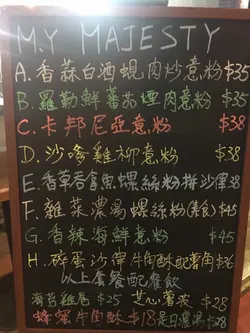 M.Y MAJESTY
A.香蒜白酒蜆肉炒意粉 $35
B.羅勒鮮蕃茄煙肉意粉 $35
C.卡邦尼亞意粉 $38
D.沙嗲雞柳意粉 $38
E.香草吞拿魚螺絲粉拼沙律 38
F.雜菜濃湯螺絲粉(素食) $45
G.香辣海鮮意粉 $45
H.碎蛋沙律牛角酥配薯角 $36
以上套餐配餐飲
海苔雞尾 $25 芝心薯波 $28
蜂蜜牛角酥 $18 是日濃湯 $28